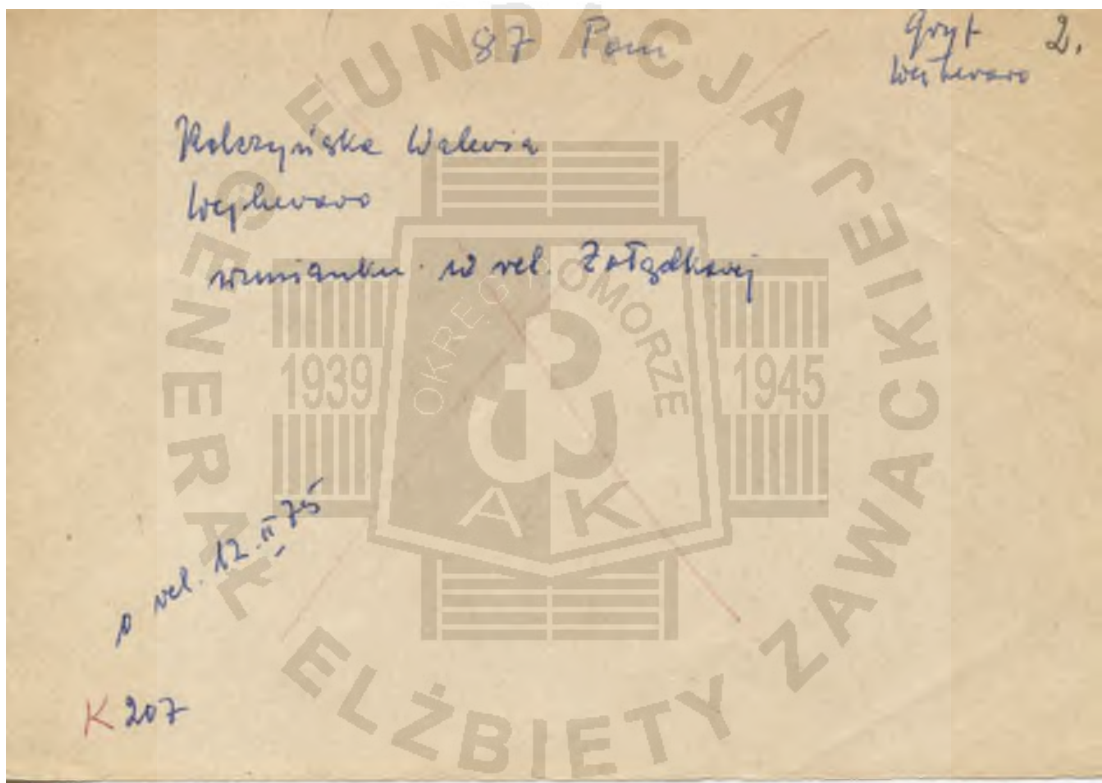 87 Pom
Gryf 2.
Wejherowo
Walczyńska Waleria
Wejherowo
wzmianka w rel. Żołądkowej
o rel. 12.II 75
K 207
FUNDACJA GENERAŁ ELŻBIETY ZAWACKIEJ
OKRĘG POMORZE
1939 1945
AK